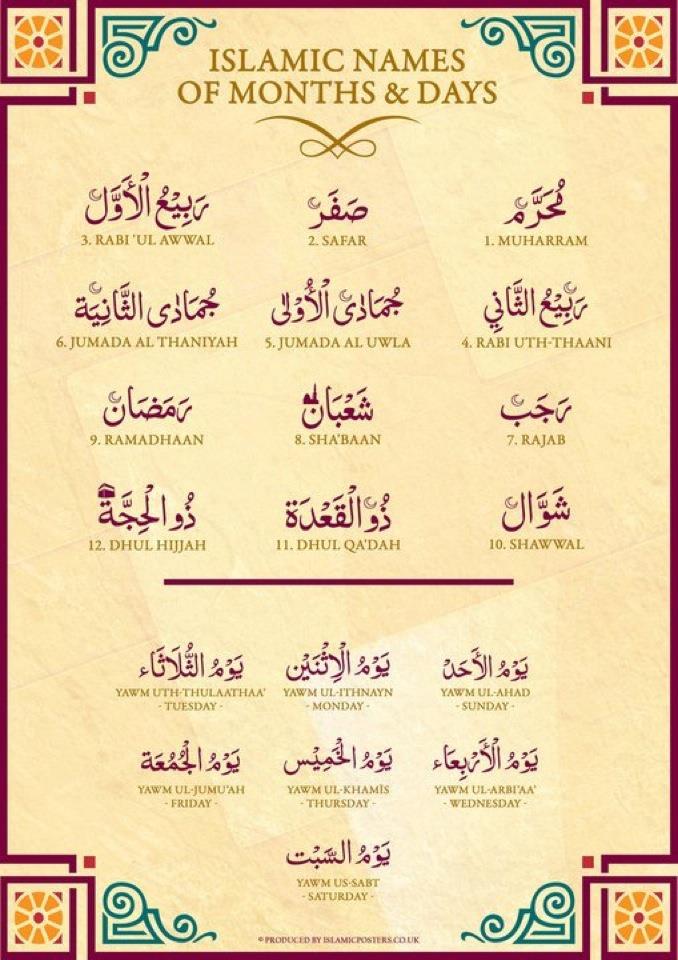 ISLAMIC NAMES
OF MONTHS & DAYS
مُحَرَّم
1. MUHARRAM
صَفَر
2. SAFAR
رَبِيْعُ الْأَوَّل
3. RABI ‘UL AWWAL
رَبِيْعُ الثَّانِي
4. RABI UTH-THAANI
جُمَادَى الْأُوْلَى
5. JUMADA AL UWLA
جُمَادَى الثَّانِيَة
6. JUMADA AL THANIYAH
رَجَب
7. RAJAB
شَعْبَان
8. SHA’BAAN
رَمَضَان
9. RAMADHAAN
شَوَّال
10. SHAWWAL
ذُو الْقَعْدَة
11. DHUL QA’DAH
ذُو الْحِجَّة
12. DHUL HIJJAH
يَوْمُ الأَحَدْ
YAWM UL-AHAD
- SUNDAY -
يَوْمُ الْاِثْنَيْن
YAWM UL-ITHNAYN
- MONDAY -
يَوْمُ الثُّلَاثَاء
YAWM UTH-THULAATHAA’
- TUESDAY -
يَوْمُ الْأَرْبِعَاء
YAWM UL-ARBI’AA’
- WEDNESDAY -
يَوْمُ الْخَمِيْس
YAWM UL-KHAMĪS
- THURSDAY -
يَوْمُ الْجُمُعَة
YAWM UL-JUMU’AH
- FRIDAY -
يَوْمُ السَّبْت
YAWM US-SABT
- SATURDAY -
© PRODUCED BY ISLAMICPOSTERS.CO.UK